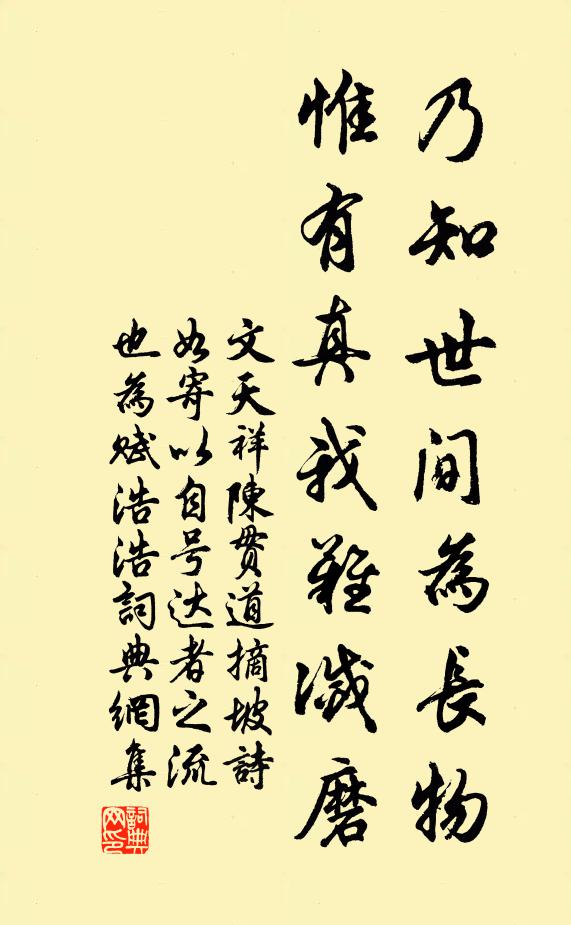 乃知世间為長物
惟有真我難滅磨
文天祥陳贯道摘坡詩
如寄以自号达者之流
也為赋浩浩詞典網集
詞典网印